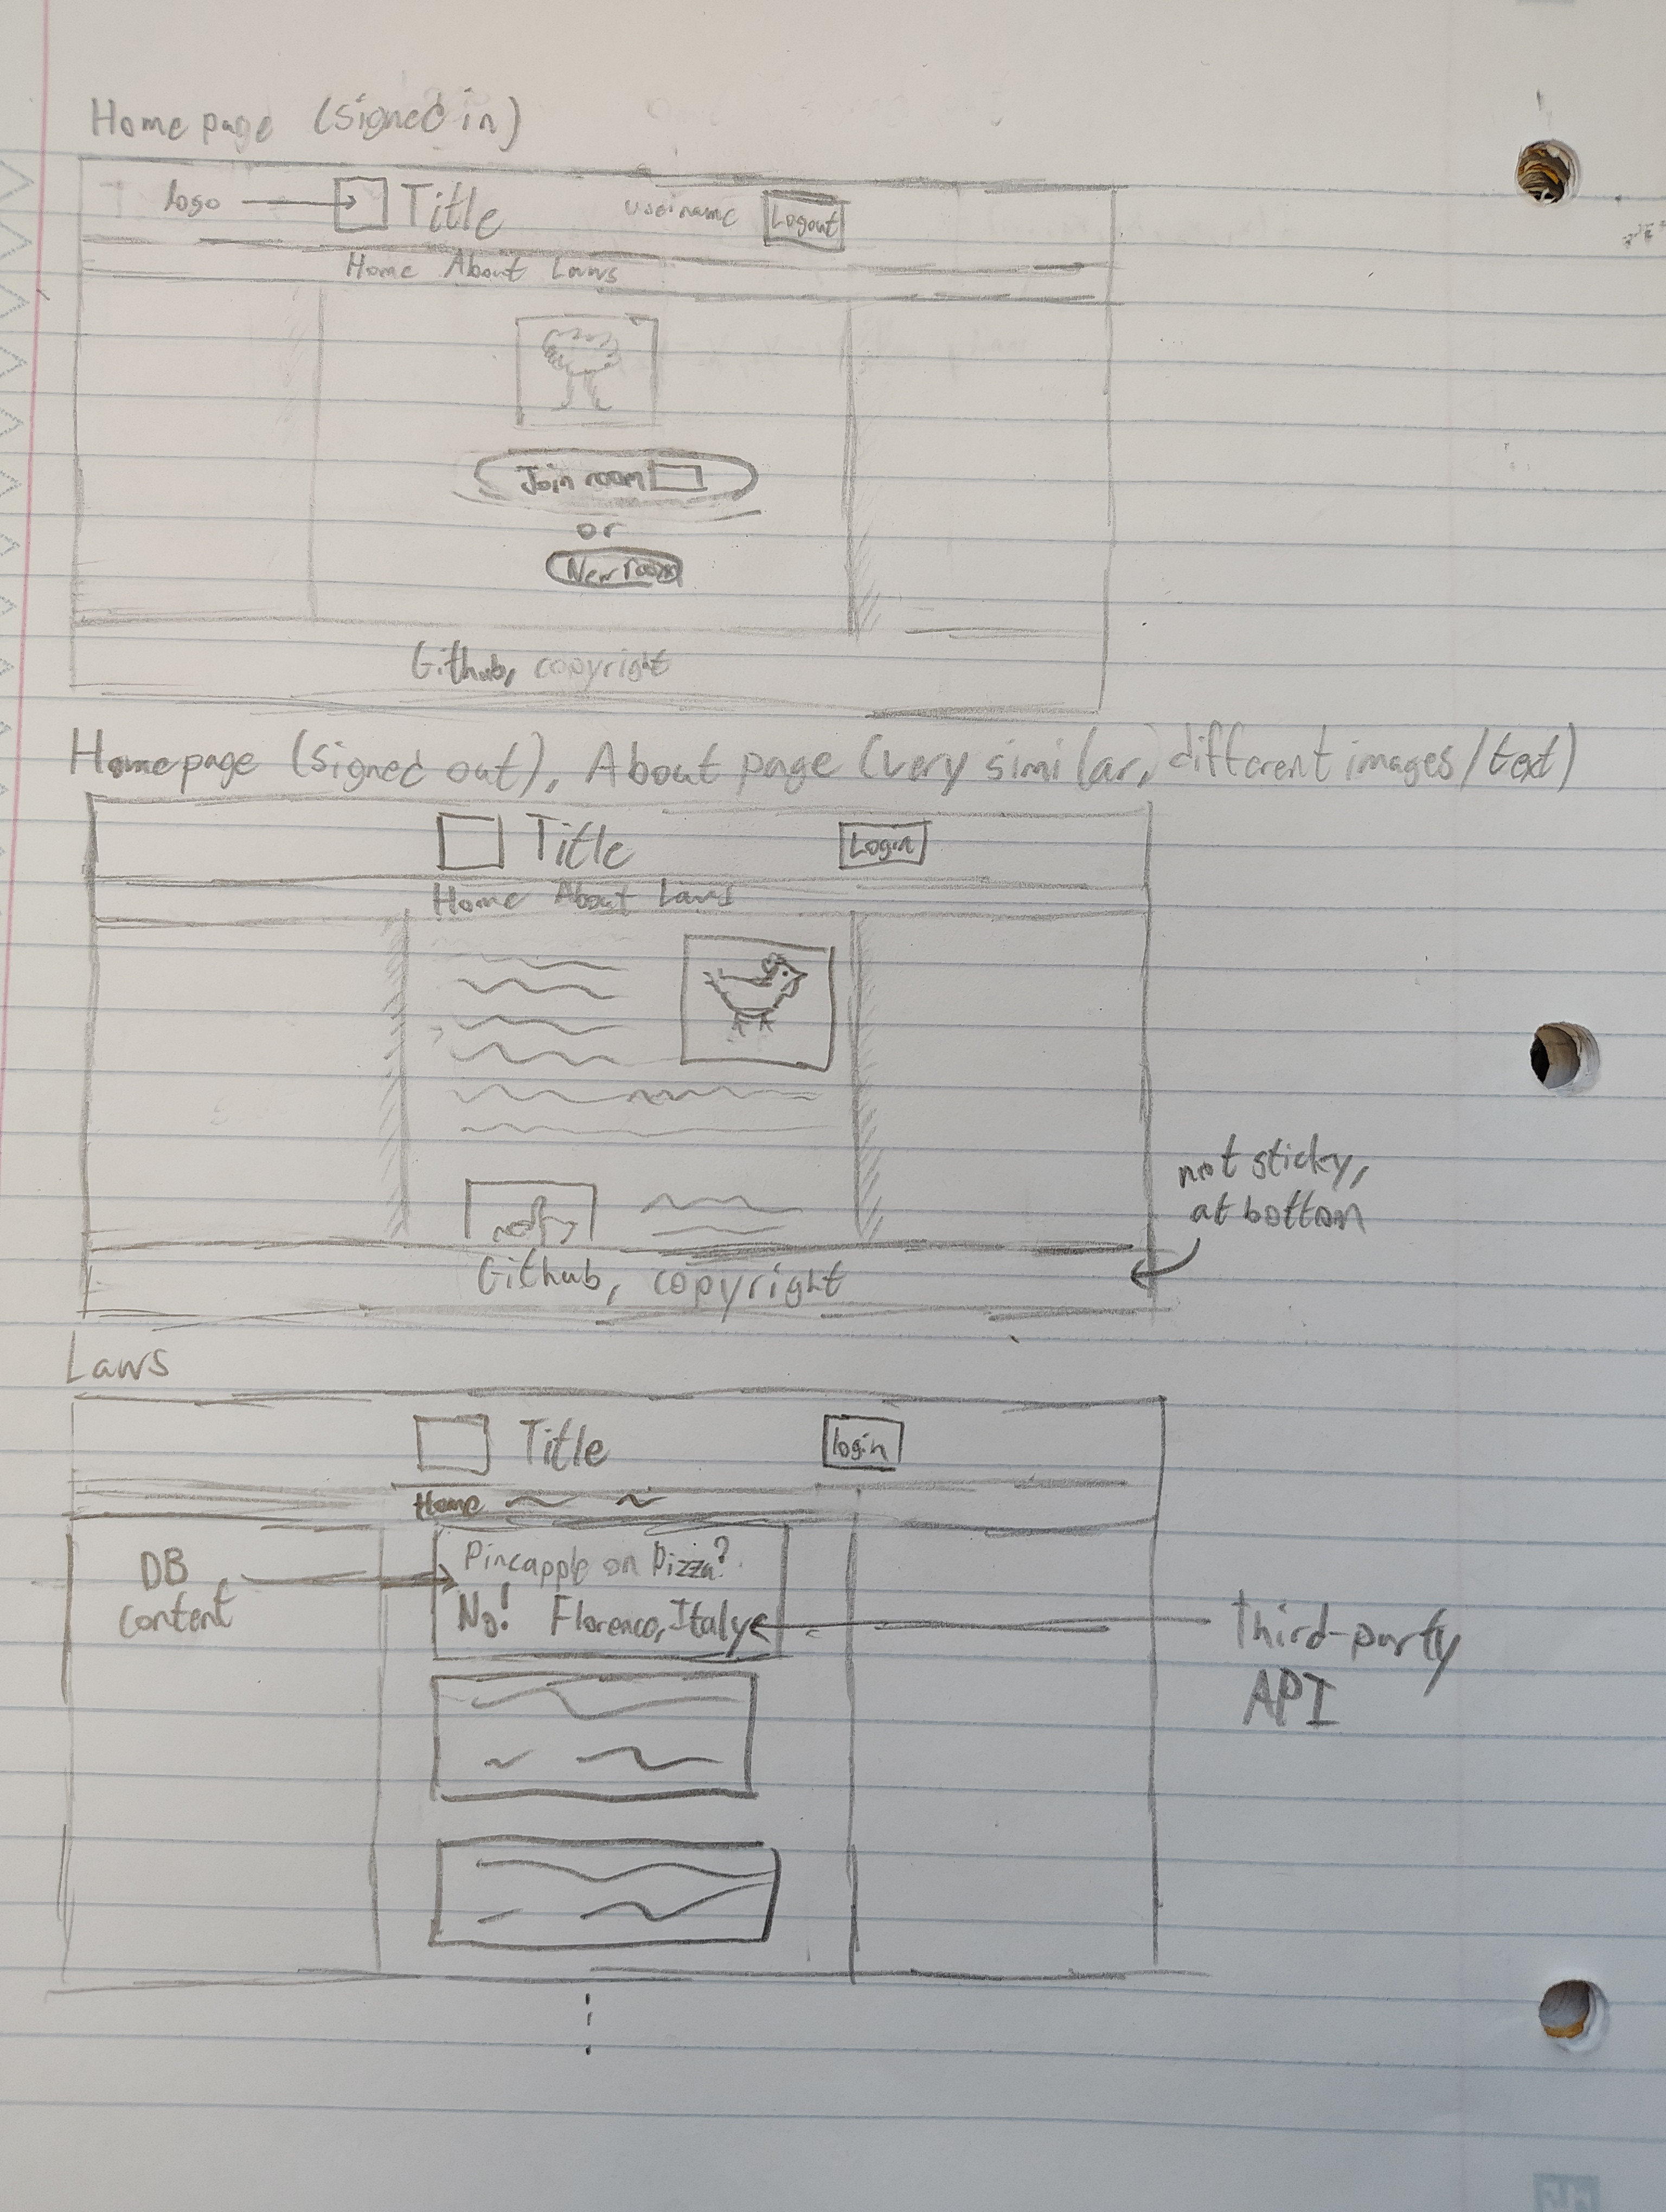 Home page (signed in)
logo Title username Logout
Home About Laws
Join room
or
New room
Github, copyright
Homepage (signed out), About page (very similar, different images/text)
Title Login
Home About Laws
not sticky,
at bottom
Github, copyright
Laws
Title login
Home
DB
content
Pineapple on Pizza?
No! Florence, Italy
third-party
API